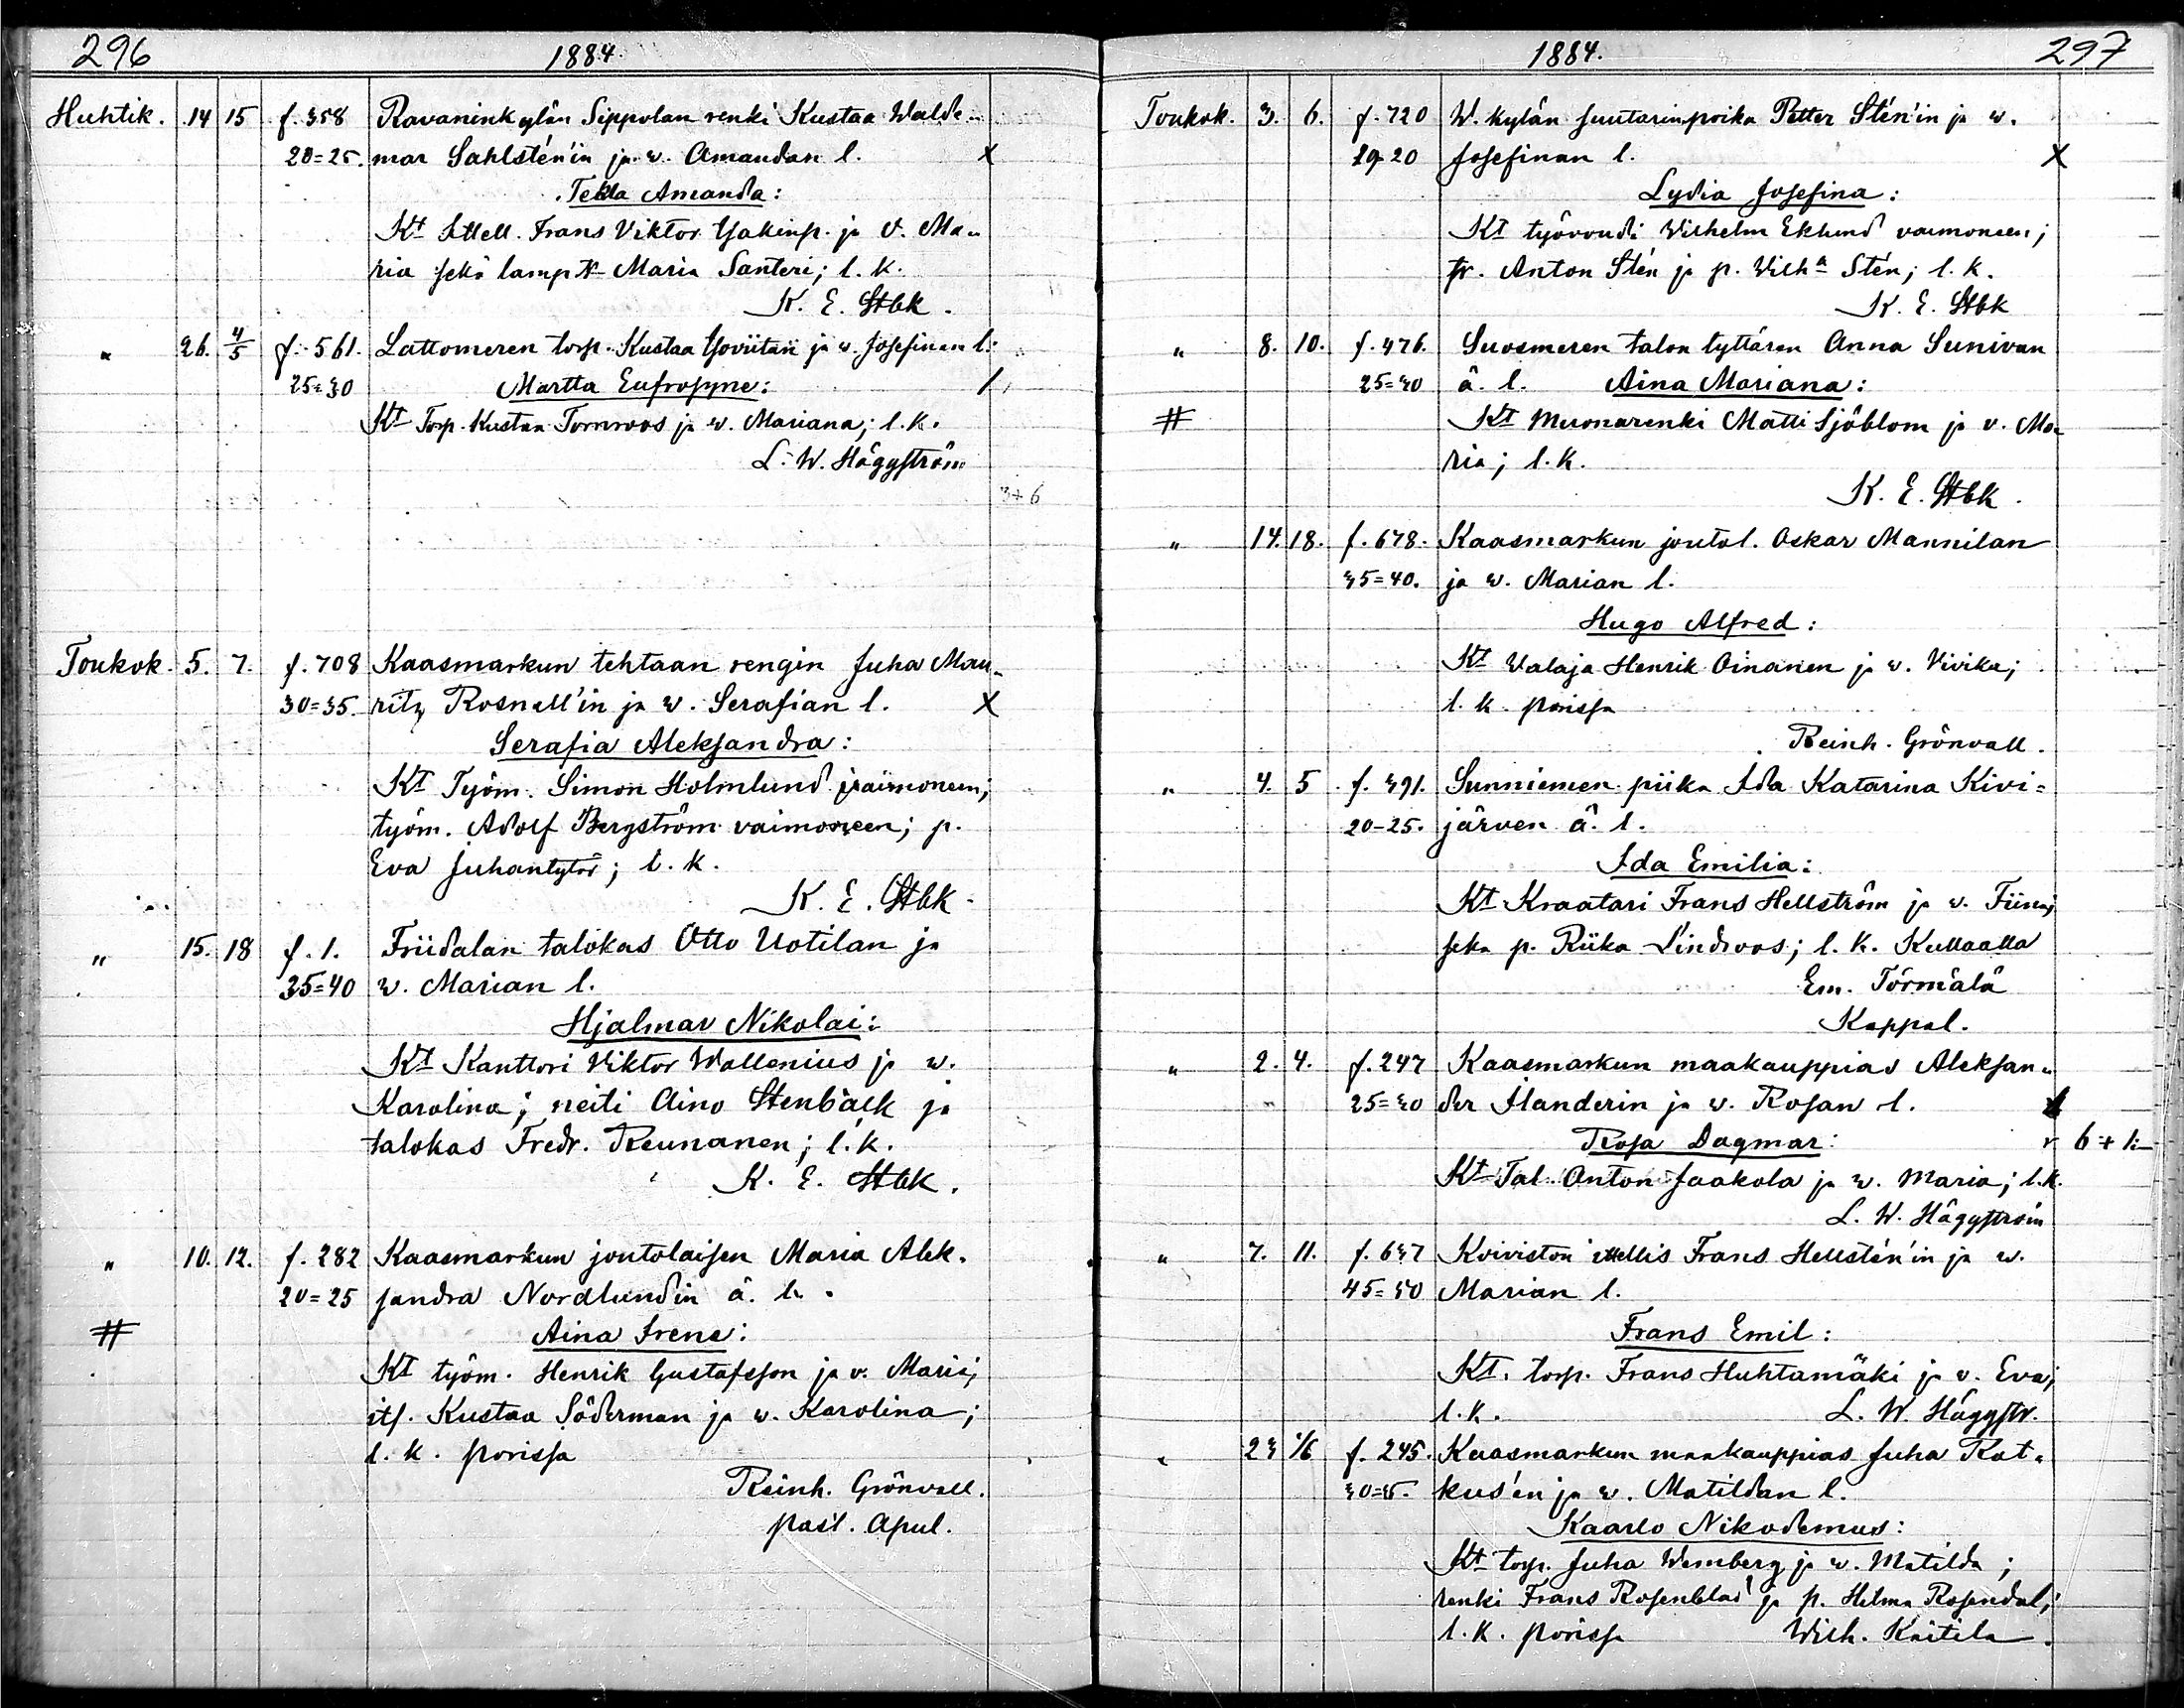 296
1884.
Huhtik. 14 15 f. 358 Ravaninkylän Sippolan renki Kustaa Walde-
20=25. mar Sahlstén'in ja w. Amandan l. X
Tekla Amanda:
Kt Frans Viktor ja v. Ma-
ria sekä Maria Santeri; l. k.
K. E. Stbk.
" 26. 4/5 f. 561. Lattomeren torp. Kustaa ja w. Josefinan l:
25=30 Martta Eufrosyne: /
Kt Torp. Kustaa Tornroos ja w. Mariana; l. k.
L. W. Hägyström
3+6
Toukok. 5. 7. f. 708 Kaasmarkun tehtaan rengin Juha Mau-
30=35. ritz Rosnell'in ja w. Serafian l. X
Serafia Aleksandra:
Kt Työm. Simon Holmlund vaimoneen;
työm. Adolf Bergström vaimoneen; p.
Eva Juhantytär; l. k.
K. E. Stbk.
" 15. 18 f. 1. Friidalan talokas Otto Uotilan ja
35=40 w. Marian l.
Hjalmar Nikolai:
Kt Kanttori Viktor Wallenius ja w.
Karolina; neiti Aino Stenbäck ja
talokas Fredr. Reunanen; l. k.
K. E. Stbk.
" 10. 12. f. 282 Kaasmarkun joutolaisen Maria Alek-
20=25 sandra Nordlundin ä. l.
# Aina Irene:
Kt työm. Henrik Gustafsson ja v. Maria;
its. Kustaa Söderman ja w. Karolina;
l. k. porissa
Reinh. Grönvall.
past. Apul.
1884.
297
Toukok. 3. 6. f. 720 W. kylän suutarinpoika Petter Stén'in ja w.
20 Josefinan l. X
Lydia Josefina:
Kt työvouti Wilhelm Eklund vaimoneen;
pr. Anton Stén ja p. Vilha Stén; l. k.
K. E. Stbk
" 8. 10. f. 476. Suosmeren talon tyttären Anna Sunivan
25=30 ä. l. Aina Mariana:
# Kt Muonarenki Matti Sjöblom ja v. Ma-
ria; l. k.
K. E. Stbk.
" 14. 18. f. 678. Kaasmarkun joutol. Oskar Mannilan
35=40. ja w. Marian l.
Hugo Alfred:
Kt Valaja Henrik Oinonen ja w. Vivika;
l. k. porissa
Reinh. Grönvall.
" 4. 5 f. 391. Sunniemen piika Ida Katarina Kivi=
20-25. järven ä. l.
Ida Emilia:
Kt Kraatari Frans Hellström ja w. Fiina;
sekä p. Riika Lindroos; l. k. Kullaalla
Em. Törmälä
Kappal.
" 2. 4. f. 247 Kaasmarkun maakauppias Aleksan-
25=30 der Ilanderin ja w. Rosan l.
Rosa Dagmar: 6+1
Kt Tal. Anton Jaakola ja w. Maria; l. k.
L. W. Hägyström
" 7. 11. f. 637 Koiviston itsellis Frans Hellstén'in ja w.
45=50 Marian l.
Frans Emil:
Kt. torp. Frans Huhtamäki ja v. Eva;
l. k. L. W. Hägystr.
" 23 1/6 f. 245. Kaasmarkun maakauppias Juha Rat-
30=35. kus'en ja w. Matildan l.
Kaarlo Nikodemus:
Kt torp. Juha Wemberg ja w. Matilda;
renki Frans Rosenblad ja p. Helma Rosendal;
l. k. porissa Wilh. Kaitila.